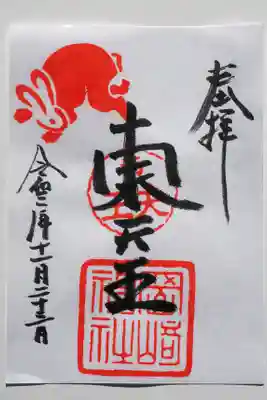 奉拝
東天王
岡崎
神社
令和二年十一月二十三日